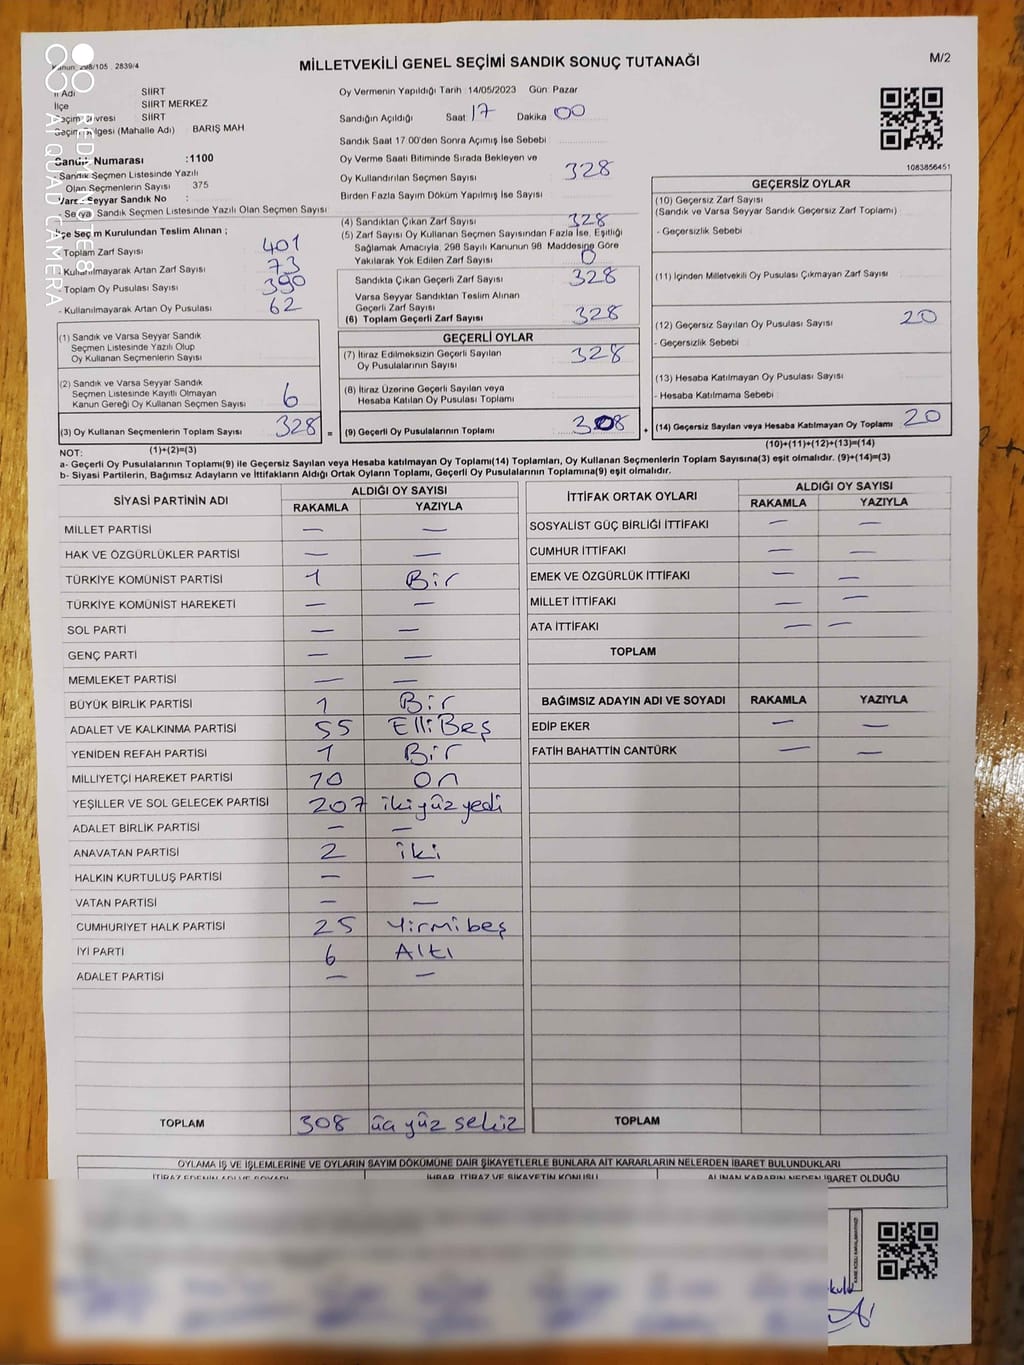 Kanun: 298/105 . 2839/4
MİLLETVEKİLİ GENEL SEÇİMİ SANDIK SONUÇ TUTANAĞI
M/2
İl Adı SİİRT
İlçe SİİRT MERKEZ
Seçim Çevresi SİİRT
Seçim Bölgesi (Mahalle Adı) BARIŞ MAH
Sandık Numarası :1100
- Sandık Seçmen Listesinde Yazılı
Olan Seçmenlerin Sayısı 375
Varsa Seyyar Sandık No :
- Seyyar Sandık Seçmen Listesinde Yazılı Olan Seçmen Sayısı
İlçe Seçim Kurulundan Teslim Alınan ;
- Toplam Zarf Sayısı 401
- Kullanılmayarak Artan Zarf Sayısı 73
- Toplam Oy Pusulası Sayısı 390
- Kullanılmayarak Artan Oy Pusulası 62
(1) Sandık ve Varsa Seyyar Sandık
Seçmen Listesinde Yazılı Olup
Oy Kullanan Seçmenlerin Sayısı
(2) Sandık ve Varsa Seyyar Sandık
Seçmen Listesinde Kayıtlı Olmayan
Kanun Gereği Oy Kullanan Seçmen Sayısı 6
(3) Oy Kullanan Seçmenlerin Toplam Sayısı 328 =
Oy Vermenin Yapıldığı Tarih :14/05/2023 Gün: Pazar
Sandığın Açıldığı Saat: 17 Dakika 00
Sandık Saat 17.00'den Sonra Açımış İse Sebebi :
Oy Verme Saati Bitiminde Sırada Bekleyen ve
Oy Kullandırılan Seçmen Sayısı 328
Birden Fazla Sayım Döküm Yapılmış İse Sayısı
(4) Sandıktan Çıkan Zarf Sayısı 328
(5) Zarf Sayısı Oy Kullanan Seçmen Sayısından Fazla İse, Eşitliği
Sağlamak Amacıyla, 298 Sayılı Kanunun 98. Maddesine Göre
Yakılarak Yok Edilen Zarf Sayısı 0
Sandıkta Çıkan Geçerli Zarf Sayısı 328
Varsa Seyyar Sandıktan Teslim Alınan
Geçerli Zarf Sayısı
(6) Toplam Geçerli Zarf Sayısı 328
GEÇERLİ OYLAR
(7) İtiraz Edilmeksizin Geçerli Sayılan
Oy Pusulalarının Sayısı 328
(8) İtiraz Üzerine Geçerli Sayılan veya
Hesaba Katılan Oy Pusulası Toplamı
(9) Geçerli Oy Pusulalarının Toplamı 308 +
1083856451
GEÇERSİZ OYLAR
(10) Geçersiz Zarf Sayısı
(Sandık ve Varsa Seyyar Sandık Geçersiz Zarf Toplamı)
- Geçersizlik Sebebi
(11) İçinden Milletvekili Oy Pusulası Çıkmayan Zarf Sayısı
(12) Geçersiz Sayılan Oy Pusulası Sayısı 20
- Geçersizlik Sebebi
(13) Hesaba Katılmayan Oy Pusulası Sayısı
- Hesaba Katılmama Sebebi
(14) Geçersiz Sayılan veya Hesaba Katılmayan Oy Toplamı 20
NOT: (1)+(2)=(3) (10)+(11)+(12)+(13)=(14)
a- Geçerli Oy Pusulalarının Toplamı(9) ile Geçersiz Sayılan veya Hesaba katılmayan Oy Toplamı(14) Toplamları, Oy Kullanan Seçmenlerin Toplam Sayısına(3) eşit olmalıdır. (9)+(14)=(3)
b- Siyasi Partilerin, Bağımsız Adayların ve İttifakların Aldığı Ortak Oyların Toplamı, Geçerli Oy Pusulalarının Toplamına(9) eşit olmalıdır.
SİYASİ PARTİNİN ADI ALDIĞI OY SAYISI
RAKAMLA YAZIYLA
MİLLET PARTİSİ — —
HAK VE ÖZGÜRLÜKLER PARTİSİ — —
TÜRKİYE KOMÜNİST PARTİSİ 1 Bir
TÜRKİYE KOMÜNİST HAREKETİ — —
SOL PARTİ — —
GENÇ PARTİ — —
MEMLEKET PARTİSİ — —
BÜYÜK BİRLİK PARTİSİ 1 Bir
ADALET VE KALKINMA PARTİSİ 55 ElliBeş
YENİDEN REFAH PARTİSİ 1 Bir
MİLLİYETÇİ HAREKET PARTİSİ 10 On
YEŞİLLER VE SOL GELECEK PARTİSİ 207 iki yüz yedi
ADALET BİRLİK PARTİSİ — —
ANAVATAN PARTİSİ 2 iki
HALKIN KURTULUŞ PARTİSİ — —
VATAN PARTİSİ — —
CUMHURİYET HALK PARTİSİ 25 Yirmi beş
İYİ PARTİ 6 Altı
ADALET PARTİSİ — —
TOPLAM 308 üç yüz sekiz
İTTİFAK ORTAK OYLARI ALDIĞI OY SAYISI
RAKAMLA YAZIYLA
SOSYALİST GÜÇ BİRLİĞİ İTTİFAKI — —
CUMHUR İTTİFAKI — —
EMEK VE ÖZGÜRLÜK İTTİFAKI — —
MİLLET İTTİFAKI — —
ATA İTTİFAKI — —
TOPLAM
BAĞIMSIZ ADAYIN ADI VE SOYADI RAKAMLA YAZIYLA
EDİP EKER — —
FATİH BAHATTİN CANTÜRK — —
TOPLAM
OYLAMA İŞ VE İŞLEMLERİNE VE OYLARIN SAYIM DÖKÜMÜNE DAİR ŞİKAYETLERLE BUNLARA AİT KARARLARIN NELERDEN İBARET BULUNDUKLARI
İTİRAZ EDENİN ADI VE SOYADI İHBAR, İTİRAZ VE ŞİKAYETİN KONUSU ALINAN KARARIN NEDEN İBARET OLDUĞU
REDMI NOTE 8
AI QUAD CAMERA